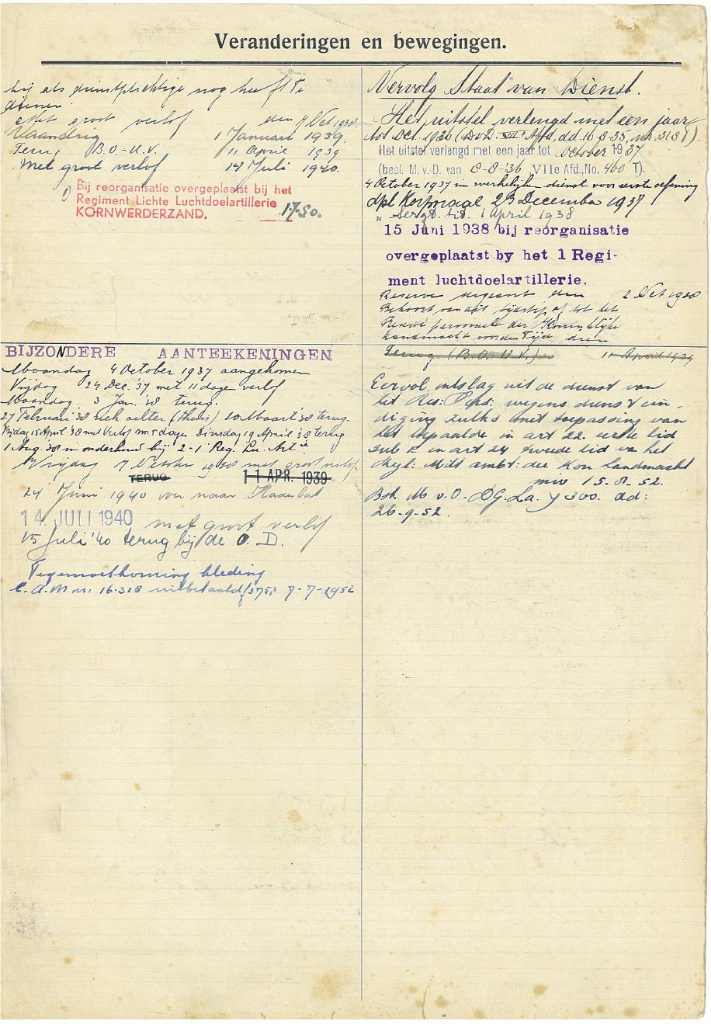 Veranderingen en bewegingen.
hij als dienstplichtige nog heeft te
dienen
Met groot verlof den 7 Oct. 1938
Vaandrig 1 Januari 1939.
Terug B.O.U.V. 11 April 1939
Met groot verlof 14 Juli 1940.
1) Bij reorganisatie overgeplaatst bij het
Regiment Lichte Luchtdoelartillerie
KORNWERDERZAND. 1-7-50.
BIJZONDERE AANTEEKENINGEN
Maandag 4 October 1937 aangekomen
Vrijdag 24 Dec. '37 met 11 dagen verlof
Maandag 3 Jan. '38 terug.
27 Februari '38 ziek achter (thuis) 10 Maart '38 terug.
Vrijdag 15 April '38 met verlof m. 5 dagen Dinsdag 19 April '38 terug
1 Aug '38 in onderhoud bij 2-1e Reg. Lu. Art.ie
Vrijdag 7 October 1938 met groot verlof.
TERUG 11 APR. 1939
24 Juni 1940 over naar
14 JULI 1940 met groot verlof
15 Juli '40 terug bij de O.D.
Tegemoetkoming kleding
C.A.M nr. 16.318 uitbetaald f 375,- 7-7-1952
Vervolg Staat van Dienst.
Het uitstel verlengd met een jaar
tot Oct. 1936 (D.v.D. VII Afd. dd. 16.8.35, nr. 318 Y).
Het uitstel verlengd met een jaar tot October 1937
(besl. M. v. D. van 8-8-'36, VIIe Afd., No. 460 T).
4 October 1937 in werkelijken dienst voor eerste oefening
dpl. Korporaal 23 December 1937
" Serg.t tit. 1 April 1938
15 Juni 1938 bij reorganisatie
overgeplaatst by het 1 Regi-
ment luchtdoelartillerie.
Reserve sergeant den 2 Oct 1938
Behoort vanaf tijdstip af tot het
Reserve personeel der Koninklijke
Landmacht voor den tijd dien
Terug (B.O.U.V.) 11 April 1939
Eervol ontslag uit de dienst van
het Res. Pers. wegens dienstein-
diging zulks met toepassing van
het bepaalde in art 22 eerste lid
sub c en art 24 tweede lid van het
Regl. Milit ambt. der Kon landmacht
m.i.v. 15.8.52.
Bsh. M v. O. D.G. La. Y 300. dd:
26-9-52.